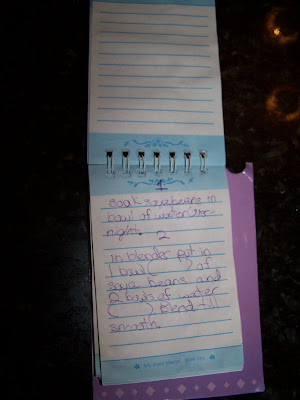 1
soak soyabeans in
bowl of water over-
night.
2
In blender put in
1 bowl ( ) of
soya beans and
2 bowls of water
( ). Blend till
smooth.